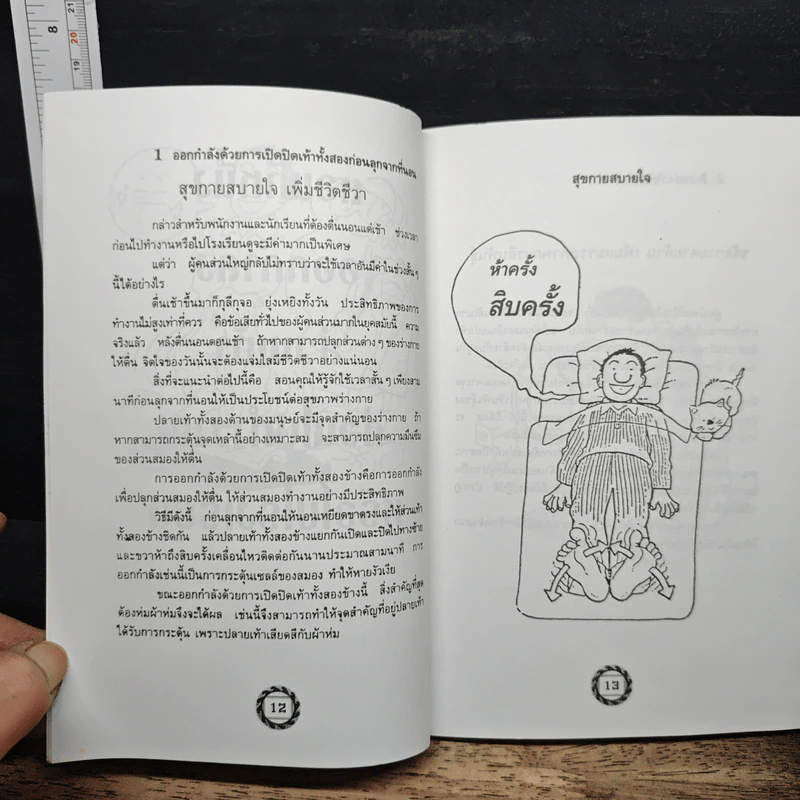 8
21
20
19
1 ออกกำลังด้วยการเปิดปิดเท้าทั้งสองก่อนลุกจากที่นอน
สุขกายสบายใจ เพิ่มชีวิตชีวา
กล่าวสำหรับพนักงานและนักเรียนที่ต้องตื่นนอนแต่เช้า ช่วงเวลา
ก่อนไปทำงานหรือไปโรงเรียนดูจะมีค่ามากเป็นพิเศษ
แต่ว่า ผู้คนส่วนใหญ่กลับไม่ทราบว่าจะใช้เวลาอันมีค่าในช่วงสั้นๆ
นี้ได้อย่างไร
ตื่นเช้าขึ้นมาก็กุลีกุจอ ยุ่งเหยิงทั้งวัน ประสิทธิภาพของการ
ทำงานไม่สูงเท่าที่ควร คือข้อเสียทั่วไปของผู้คนส่วนมากในยุคสมัยนี้ ความ
จริงแล้ว หลังตื่นนอนตอนเช้า ถ้าหากสามารถปลุกส่วนต่างๆ ของร่างกาย
ให้ตื่น จิตใจของวันนั้นจะต้องแจ่มใสมีชีวิตชีวาอย่างแน่นอน
สิ่งที่จะแนะนำต่อไปนี้คือ สอนคุณให้รู้จักใช้เวลาสั้นๆ เพียงสาม
นาทีก่อนลุกจากที่นอนให้เป็นประโยชน์ต่อสุขภาพร่างกาย
ปลายเท้าทั้งสองด้านของมนุษย์จะมีจุดสำคัญของร่างกาย ถ้า
หากสามารถกระตุ้นจุดเหล่านี้อย่างเหมาะสม จะสามารถปลุกความมึนซึม
ของส่วนสมองให้ตื่น
การออกกำลังด้วยการเปิดปิดเท้าทั้งสองข้างคือการออกกำลัง
เพื่อปลุกส่วนสมองให้ตื่น ให้ส่วนสมองทำงานอย่างมีประสิทธิภาพ
วิธีมีดังนี้ ก่อนลุกจากที่นอนให้นอนเหยียดขาตรงและให้ส้นเท้า
ทั้งสองข้างชิดกัน แล้วปลายเท้าทั้งสองข้างแยกกันเปิดและปิดไปทางซ้าย
และขวาห้าถึงสิบครั้งเคลื่อนไหวติดต่อกันนานประมาณสามนาที การ
ออกกำลังเช่นนี้เป็นการกระตุ้นเซลล์ของสมอง ทำให้หายงัวเงีย
ขณะออกกำลังด้วยการเปิดปิดเท้าทั้งสองข้างนี้ สิ่งสำคัญที่สุด
ต้องห่มผ้าห่มจึงจะได้ผล เช่นนี้จึงสามารถทำให้จุดสำคัญที่อยู่ปลายเท้า
ได้รับการกระตุ้น เพราะปลายเท้าเสียดสีกับผ้าห่ม
12
สุขกายสบายใจ
ห้าครั้ง
สิบครั้ง
13